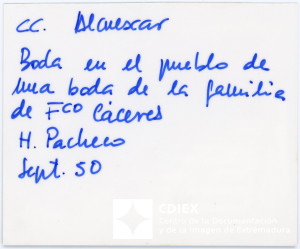 CC. Alcuescar
Boda en el pueblo de
una boda de la familia
de Fco Cáceres
H. Pacheco
Sept. 50
CDIEX
Centro de la Documentación
y de la Imagen de Extremadura